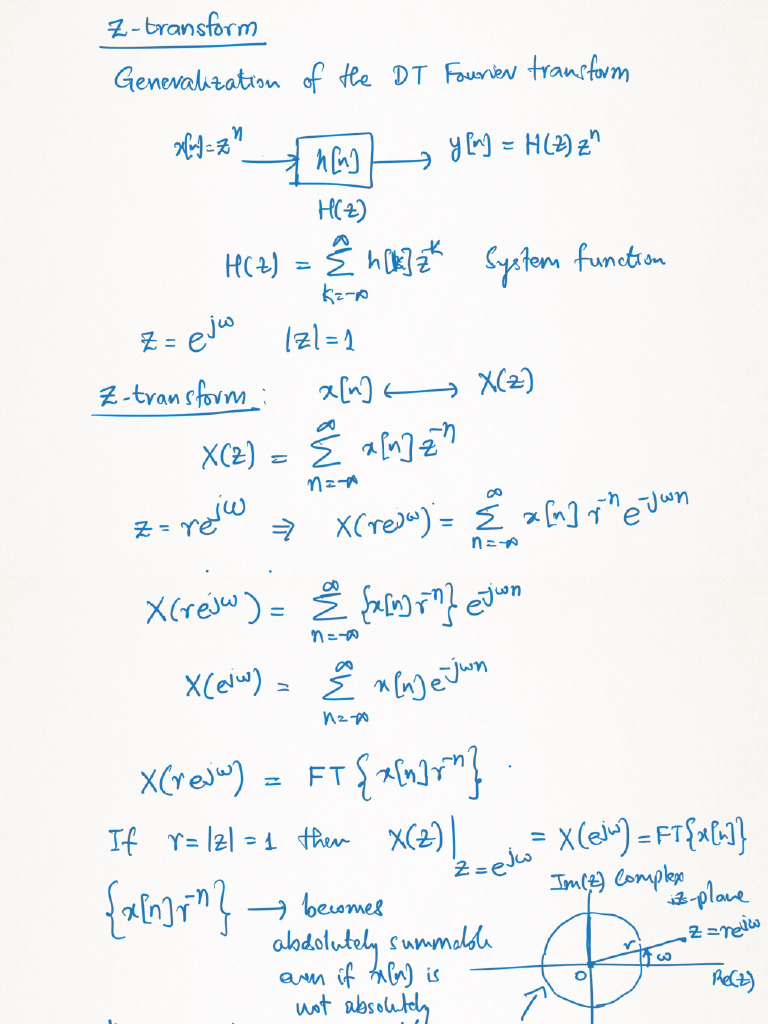 Z-transform
Generalization of the DT Fourier transform
x[n]=zⁿ → h[n] → y[n] = H(z) zⁿ
H(z)
H(z) = ∑_{k=-∞}^{∞} h[k] z^{-k} System function
z = e^{jω} |z|=1
Z-transform: x[n] ⟷ X(z)
X(z) = ∑_{n=-∞}^{∞} x[n] z^{-n}
z = re^{jω} ⇒ X(re^{jω}) = ∑_{n=-∞}^{∞} x[n] r^{-n} e^{-jωn}
X(re^{jω}) = ∑_{n=-∞}^{∞} {x[n] r^{-n}} e^{-jωn}
X(e^{jω}) = ∑_{n=-∞}^{∞} x[n] e^{-jωn}
X(re^{jω}) = FT {x[n] r^{-n}}.
If r=|z|=1 then X(z)|_{z=e^{jω}} = X(e^{jω}) = FT{x[n]}
{x[n] r^{-n}} → becomes
abdsolutely summable
even if x[n] is
not absolutely
Im(z) Complex
z-plane
z=re^{jω}
r
ω
0
Re(z)